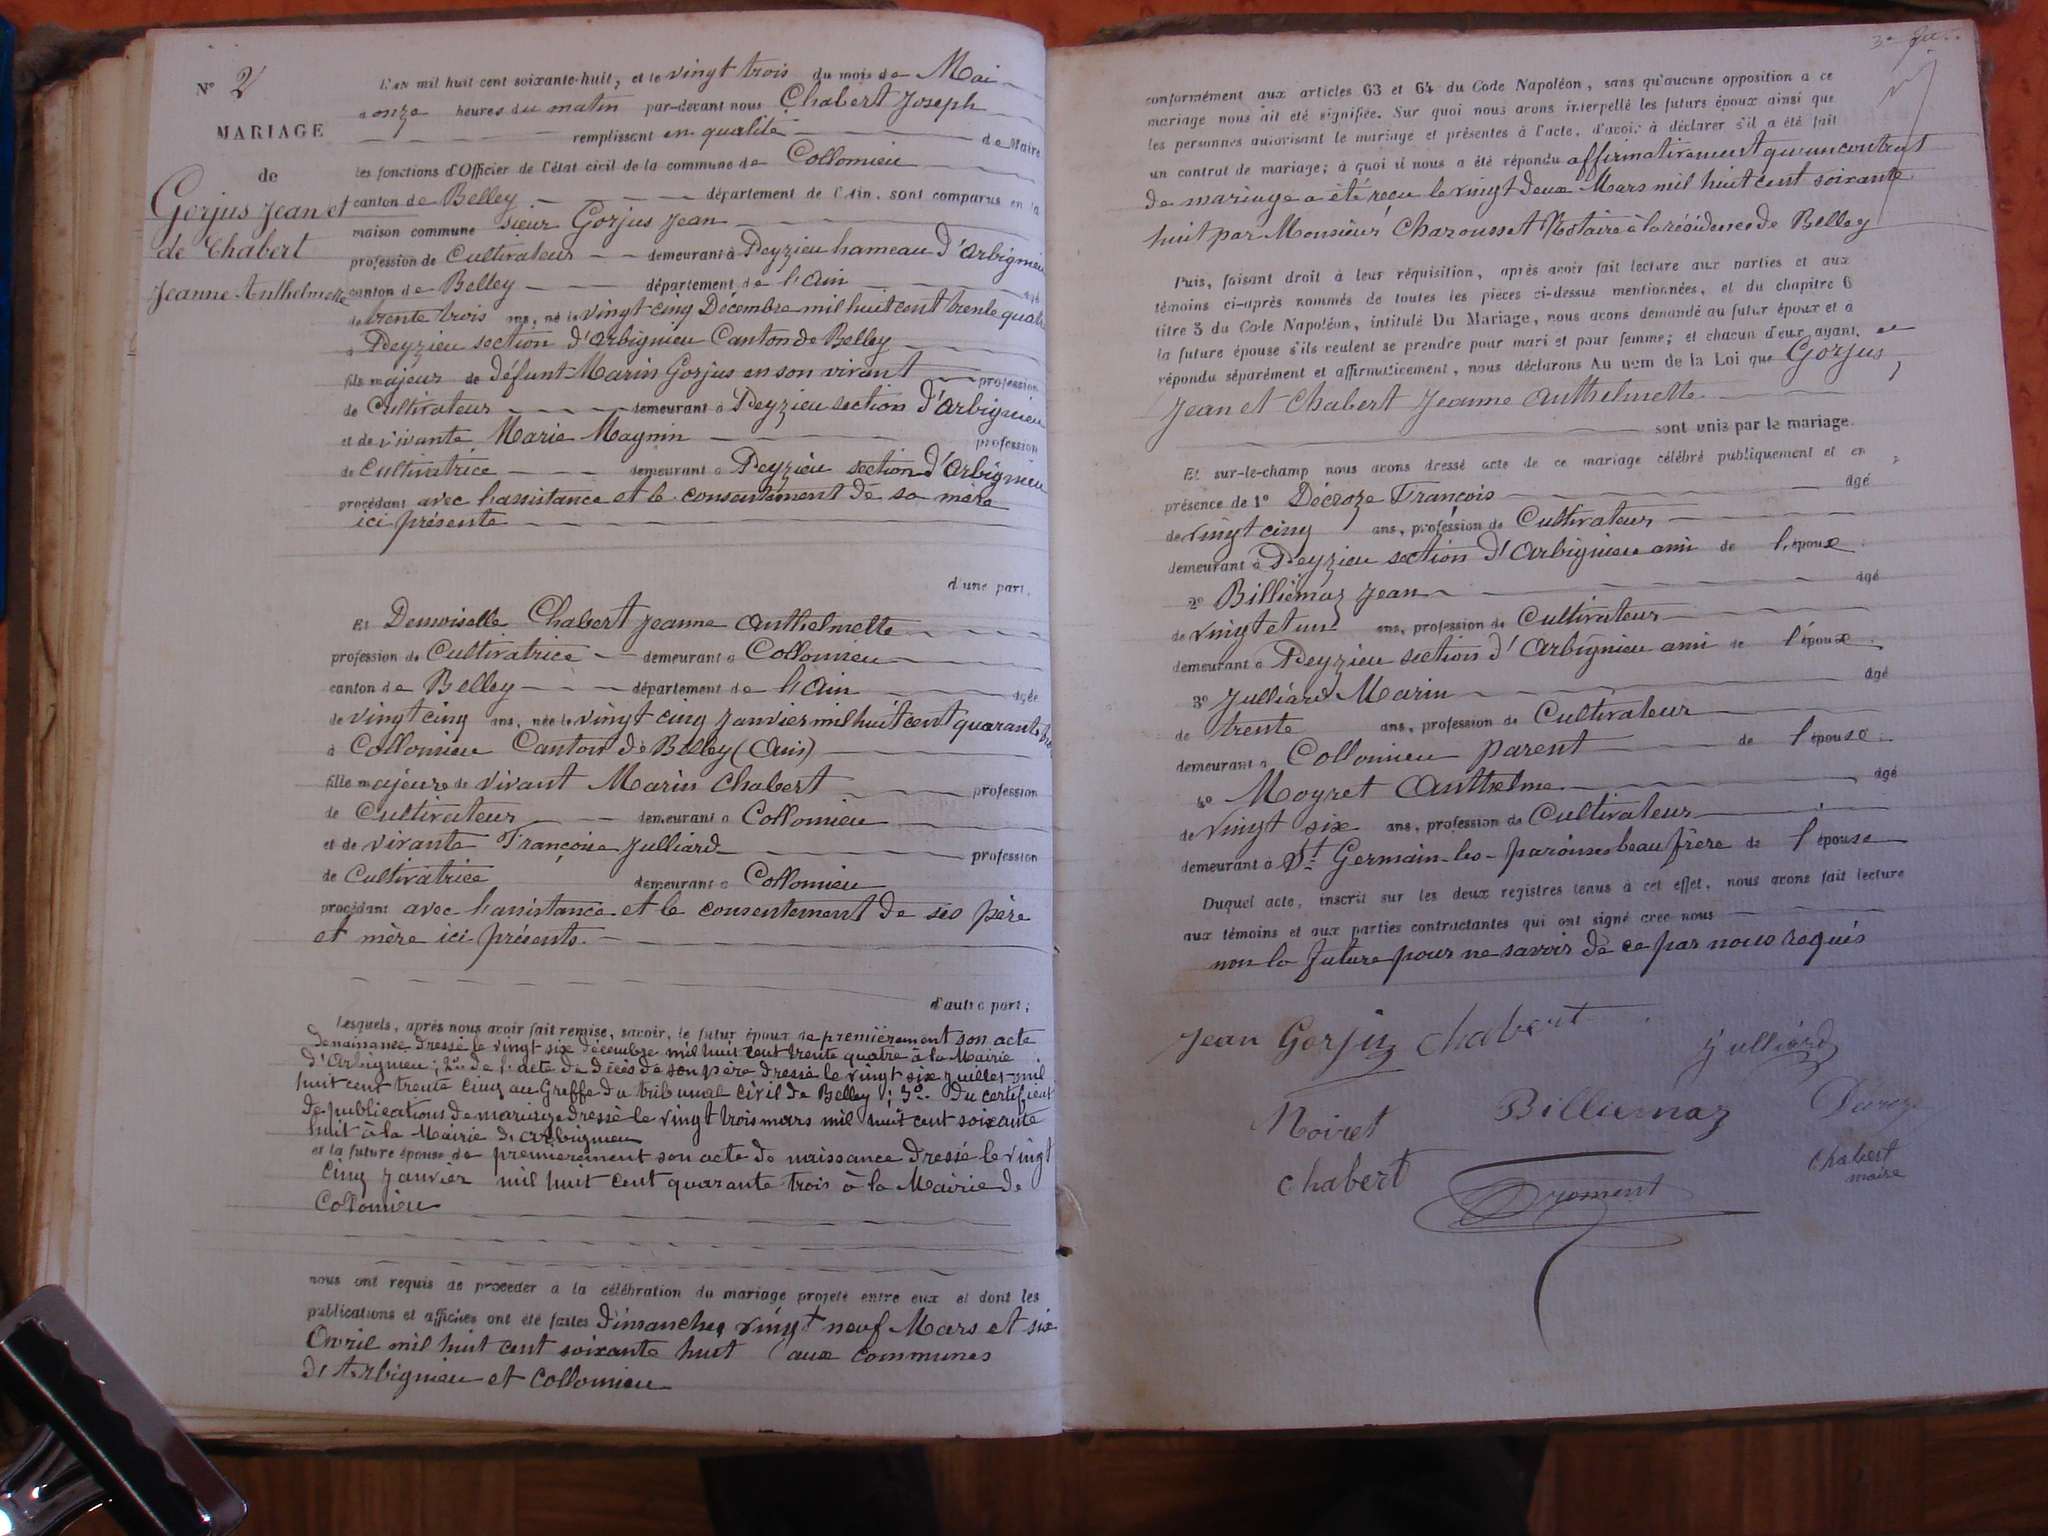 N° 2
MARIAGE
de
Gorjus Jean et
de Chabert
Jeanne Anthelmette
L'an mil huit cent soixante-huit, et le vingt trois du mois de Mai
à onze heures du matin par-devant nous Chabert Joseph
remplissant en qualité de Maire
les fonctions d'Officier de l'état civil de la commune de Collomieu
canton de Belley département de l'Ain, sont comparus en la
maison commune sieur Gorjus Jean
profession de Cultivateur demeurant à Peyzieu hameau d'Arbignieu
canton de Belley département de l'Ain âgé
de trente trois ans, né le vingt cinq Décembre mil huit cent trente quatre
à Peyzieu section d'Arbignieu Canton de Belley
fils majeur de défunt Marin Gorjus en son vivant profession
de Cultivateur demeurant à Peyzieu section d'Arbignieu
et de vivante Marie Magnin profession
de Cultivatrice demeurant à Peyzieu section d'Arbignieu
procédant avec l'assistance et le consentement de sa mère
ici présente
d'une part,
Et Demoiselle Chabert Jeanne Anthelmette
profession de Cultivatrice demeurant à Collomieu
canton de Belley département de l'Ain âgée
de vingt cinq ans, née le vingt cinq Janvier mil huit cent quarante
à Collomieu Canton de Belley (Ain)
fille majeure de vivant Marin Chabert profession
de Cultivateur demeurant à Collomieu
et de vivante Françoise Julliard profession
de Cultivatrice demeurant à Collomieu
procédant avec l'assistance et le consentement de ses père
et mère ici présents.
d'autre part;
Lesquels, après nous avoir fait remise, savoir, le futur époux de premièrement son acte
de naissance dressé le vingt six décembre mil huit cent trente quatre à la Mairie
d'Arbignieu; 2° de l'acte de décès de son père dressé le vingt six juillet mil
huit cent trente cinq au Greffe du tribunal civil de Belley; 3° Du certificat
de publications de mariage dressé le vingt trois mars mil huit cent soixante
huit à la Mairie d'Arbignieu
et la future épouse de premièrement son acte de naissance dressé le vingt
cinq Janvier mil huit cent quarante trois à la Mairie de
Collomieu
nous ont requis de procéder à la célébration du mariage projeté entre eux et dont les
publications et affiches ont été faites Dimanches vingt neuf Mars et six
Avril mil huit cent soixante huit aux communes
d'Arbignieu et Collomieu
conformément aux articles 63 et 64 du Code Napoléon, sans qu'aucune opposition à ce
mariage nous ait été signifiée. Sur quoi nous avons interpellé les futurs époux ainsi que
les personnes autorisant le mariage et présentes à l'acte, d'avoir à déclarer s'il a été fait
un contrat de mariage; à quoi il nous a été répondu affirmativement qu'un contrat
de mariage a été reçu le vingt deux Mars mil huit cent soixante
huit par Monsieur Charousset Notaire à la résidence de Belley
Puis, faisant droit à leur réquisition, après avoir fait lecture aux parties et aux
témoins ci-après nommés de toutes les pièces ci-dessus mentionnées, et du chapitre 6
titre 5 du Code Napoléon, intitulé Du Mariage, nous avons demandé au futur époux et à
la future épouse s'ils veulent se prendre pour mari et pour femme; et chacun d'eux ayant
répondu séparément et affirmativement, nous déclarons Au nom de la Loi que Gorjus
Jean et Chabert Jeanne Anthelmette
sont unis par le mariage.
Et sur-le-champ nous avons dressé acte de ce mariage célébré publiquement et en
présence de 1° Décroze François âgé
de vingt cinq ans, profession de Cultivateur
demeurant à Peyzieu section d'Arbignieu ami de l'époux
2° Billiemaz Jean âgé
de vingt et un ans, profession de Cultivateur
demeurant à Peyzieu section d'Arbignieu ami de l'époux
3° Julliard Marin âgé
de trente ans, profession de Cultivateur
demeurant à Collomieu parent de l'épouse
4° Moyret Anthelme âgé
de vingt six ans, profession de Cultivateur
demeurant à St Germain-les-paroisses beau frère de l'épouse
Duquel acte, inscrit sur les deux registres tenus à cet effet, nous avons fait lecture
aux témoins et aux parties contractantes qui ont signé avec nous
non la future pour ne savoir de ce par nous requis
Jean Gorjuz Chabert Julliard
Moiret Billiemaz
Chabert Chabert
maire